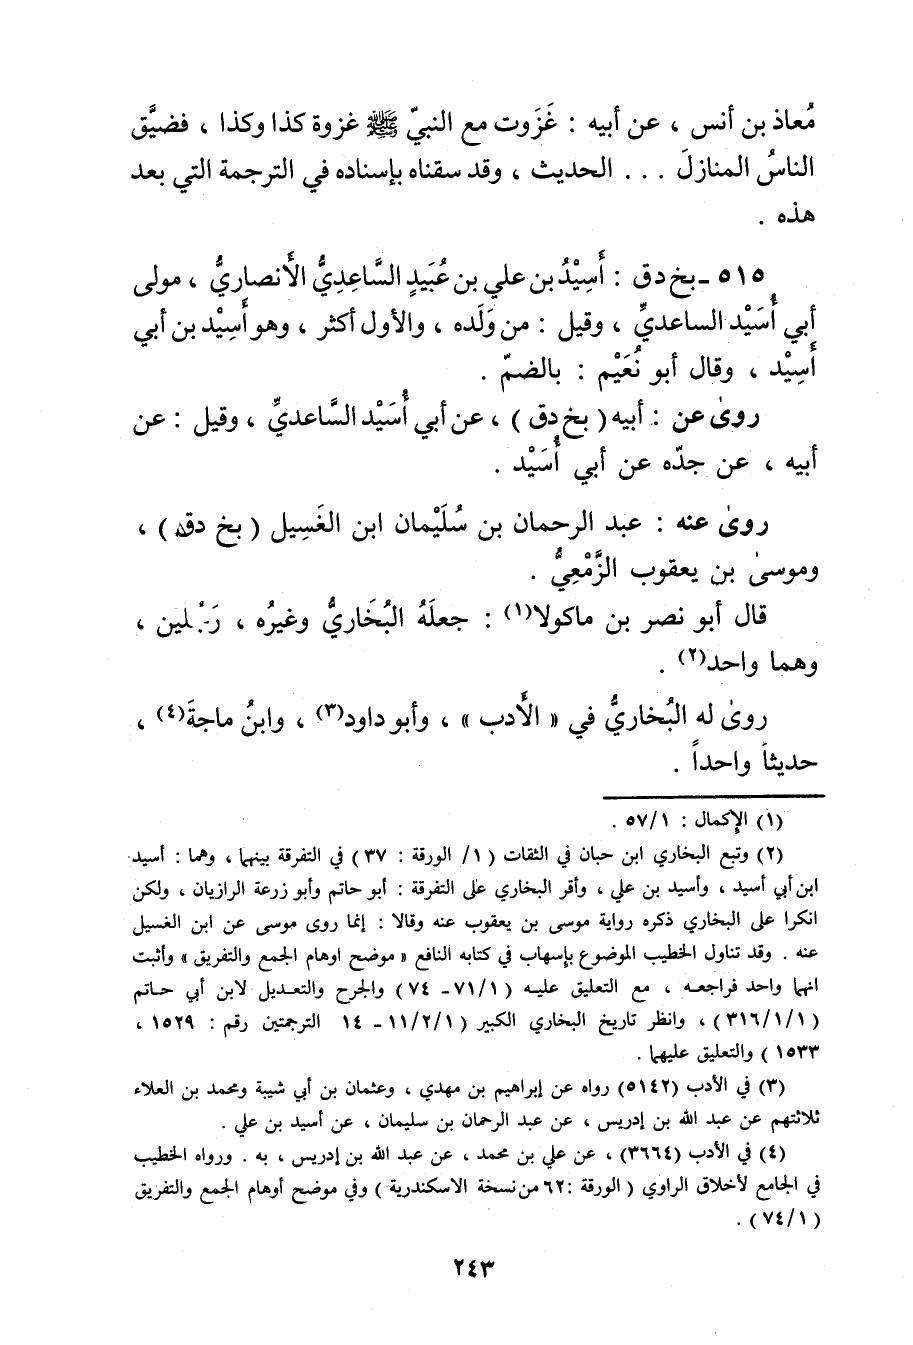 مُعاذ بن أنس ، عن أبيه : غَزَوت مع النبيّ ﷺ غزوة كذا وكذا ، فضيَّق
الناسُ المنازلَ . . . الحديث ، وقد سقناه بإسناده في الترجمة التي بعد
هذه .
٥١٥ ـ بخ دق : أَسِيْدُ بن علي بن عُبَيدٍ السَّاعِدِيُّ الأَنصاريُّ ، مولى
أبي أُسَيْد الساعديِّ ، وقيل : من وَلَده ، والأول أكثر ، وهو أَسِيْد بن أبي
أَسِيْد ، وقال أبو نُعَيْم : بالضمّ .
روىٰ عن : أبيه ( بخ دق ) ، عن أبي أُسَيْد السَّاعديِّ ، وقيل : عن
أبيه ، عن جدّه عن أبي أُسَيْد .
روىٰ عنه : عبد الرحمان بن سُلَيْمان ابن الغَسِيل ( بخ دق ) ،
وموسىٰ بن يعقوب الزَّمْعِيُّ .
قال أبو نصر بن ماكولا(١) : جعلَهُ البُخَاريُّ وغيرُه ، رَجُلين ،
وهما واحد(٢) .
روىٰ له البُخاريُّ في « الأَدب » ، وأبو داود(٣) ، وابنُ ماجةَ(٤) ،
حديثاً واحداً .
(١) الإكمال : ٥٧/١ .
(٢) وتبع البخاري ابن حبان في الثقات ( ١/ الورقة : ٣٧ ) في التفرقة بينهما ، وهما : أسيد
ابن أبي أسيد ، وأسيد بن علي ، وأقر البخاري على التفرقة : أبو حاتم وأبو زرعة الرازيان ، ولكن
انكرا على البخاري ذكره رواية موسى بن يعقوب عنه وقالا : إنما روى موسى عن ابن الغسيل
عنه . وقد تناول الخطيب الموضوع بإسهاب في كتابه النافع « موضح اوهام الجمع والتفريق » وأثبت
انهما واحد فراجعه ، مع التعليق عليه ( ٧١/١ ـ ٧٤ ) والجرح والتعديل لابن أبي حاتم
( ٣١٦/١/١ ) ، وانظر تاريخ البخاري الكبير ( ١١/٢/١ ـ ١٤ الترجمتين رقم : ١٥٢٩ ،
١٥٣٣ ) والتعليق عليهما .
(٣) في الأدب (٥١٤٢) رواه عن إبراهيم بن مهدي ، وعثمان بن أبي شيبة ومحمد بن العلاء
ثلاثتهم عن عبد الله بن إدريس ، عن عبد الرحمان بن سليمان ، عن أسيد بن علي .
(٤) في الأدب (٣٦٦٤) ، عن علي بن محمد ، عن عبد الله بن إدريس ، به . ورواه الخطيب
في الجامع لأخلاق الراوي ( الورقة : ٦٢ من نسخة الاسكندرية ) وفي موضح أوهام الجمع والتفريق
( ٧٤/١ ) .
٢٤٣